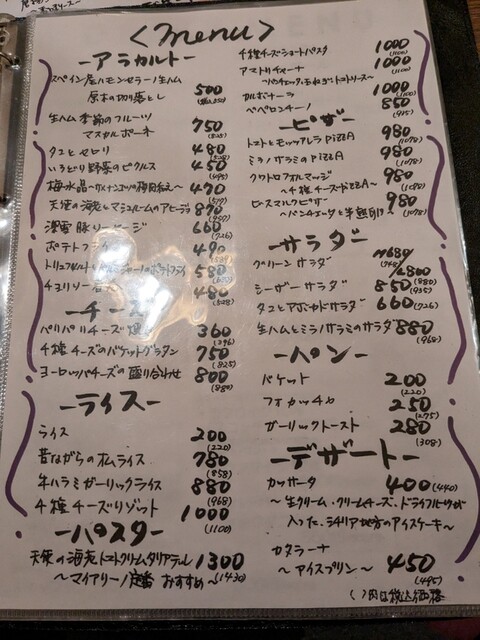 <menu>
-アラカルト-
スペイン産ハモンセラーノ生ハム
原木の切り落とし 500 (550)
生ハム 季節のフルーツ
マスカルポーネ 750 (825)
タコとセロリ 480 (528)
いろどり野菜のピクルス 450 (495)
梅水晶 470 (517)
天使の海老とマッシュルームのアヒージョ 870 (957)
660 (726)
ポテトフライ 490 (539)
580 (638)
チョリソー 480 (528)
-チーズ-
パリパリチーズ 360 (396)
4種チーズのバケットグラタン 750 (825)
ヨーロッパチーズの盛り合わせ 800 (880)
-ライス-
ライス 200 (220)
昔ながらのオムライス 780 (858)
牛ハラミガーリックライス 880 (968)
4種チーズリゾット 1000 (1100)
-パスタ-
天使の海老トマトクリームタリアテッレ 1300 (1430)
〜マイアリーノ定番 おすすめ〜
4種チーズショートパスタ 1000 (1100)
アマトリチャーナ 1000 (1100)
〜パンチェッタ・玉ねぎ・トマトソース〜
カルボナーラ 1000 (1100)
ペペロンチーノ 850 (935)
-ピザ-
トマトとモッツァレラPIZZA 980 (1078)
ミラノサラミのPIZZA 980 (1078)
クワトロフォルマッジ 980 (1078)
〜4種チーズPIZZA〜
ビスマルクピザ 980 (1078)
〜パンチェッタと半熟卵〜
-サラダ-
グリーンサラダ M680 (748) / L800 (880)
シーザーサラダ 850 (935)
タコとアボカドサラダ 660 (726)
生ハムとミラノサラミのサラダ 880 (968)
-パン-
バケット 200 (220)
フォカッチャ 250 (275)
ガーリックトースト 280 (308)
-デザート-
カッサータ 400 (440)
〜生クリーム・クリームチーズ・ドライフルーツが
入った、シチリア地方のアイスケーキ〜
カタラーナ 450 (495)
〜アイスプリン〜
( )内は税込価格